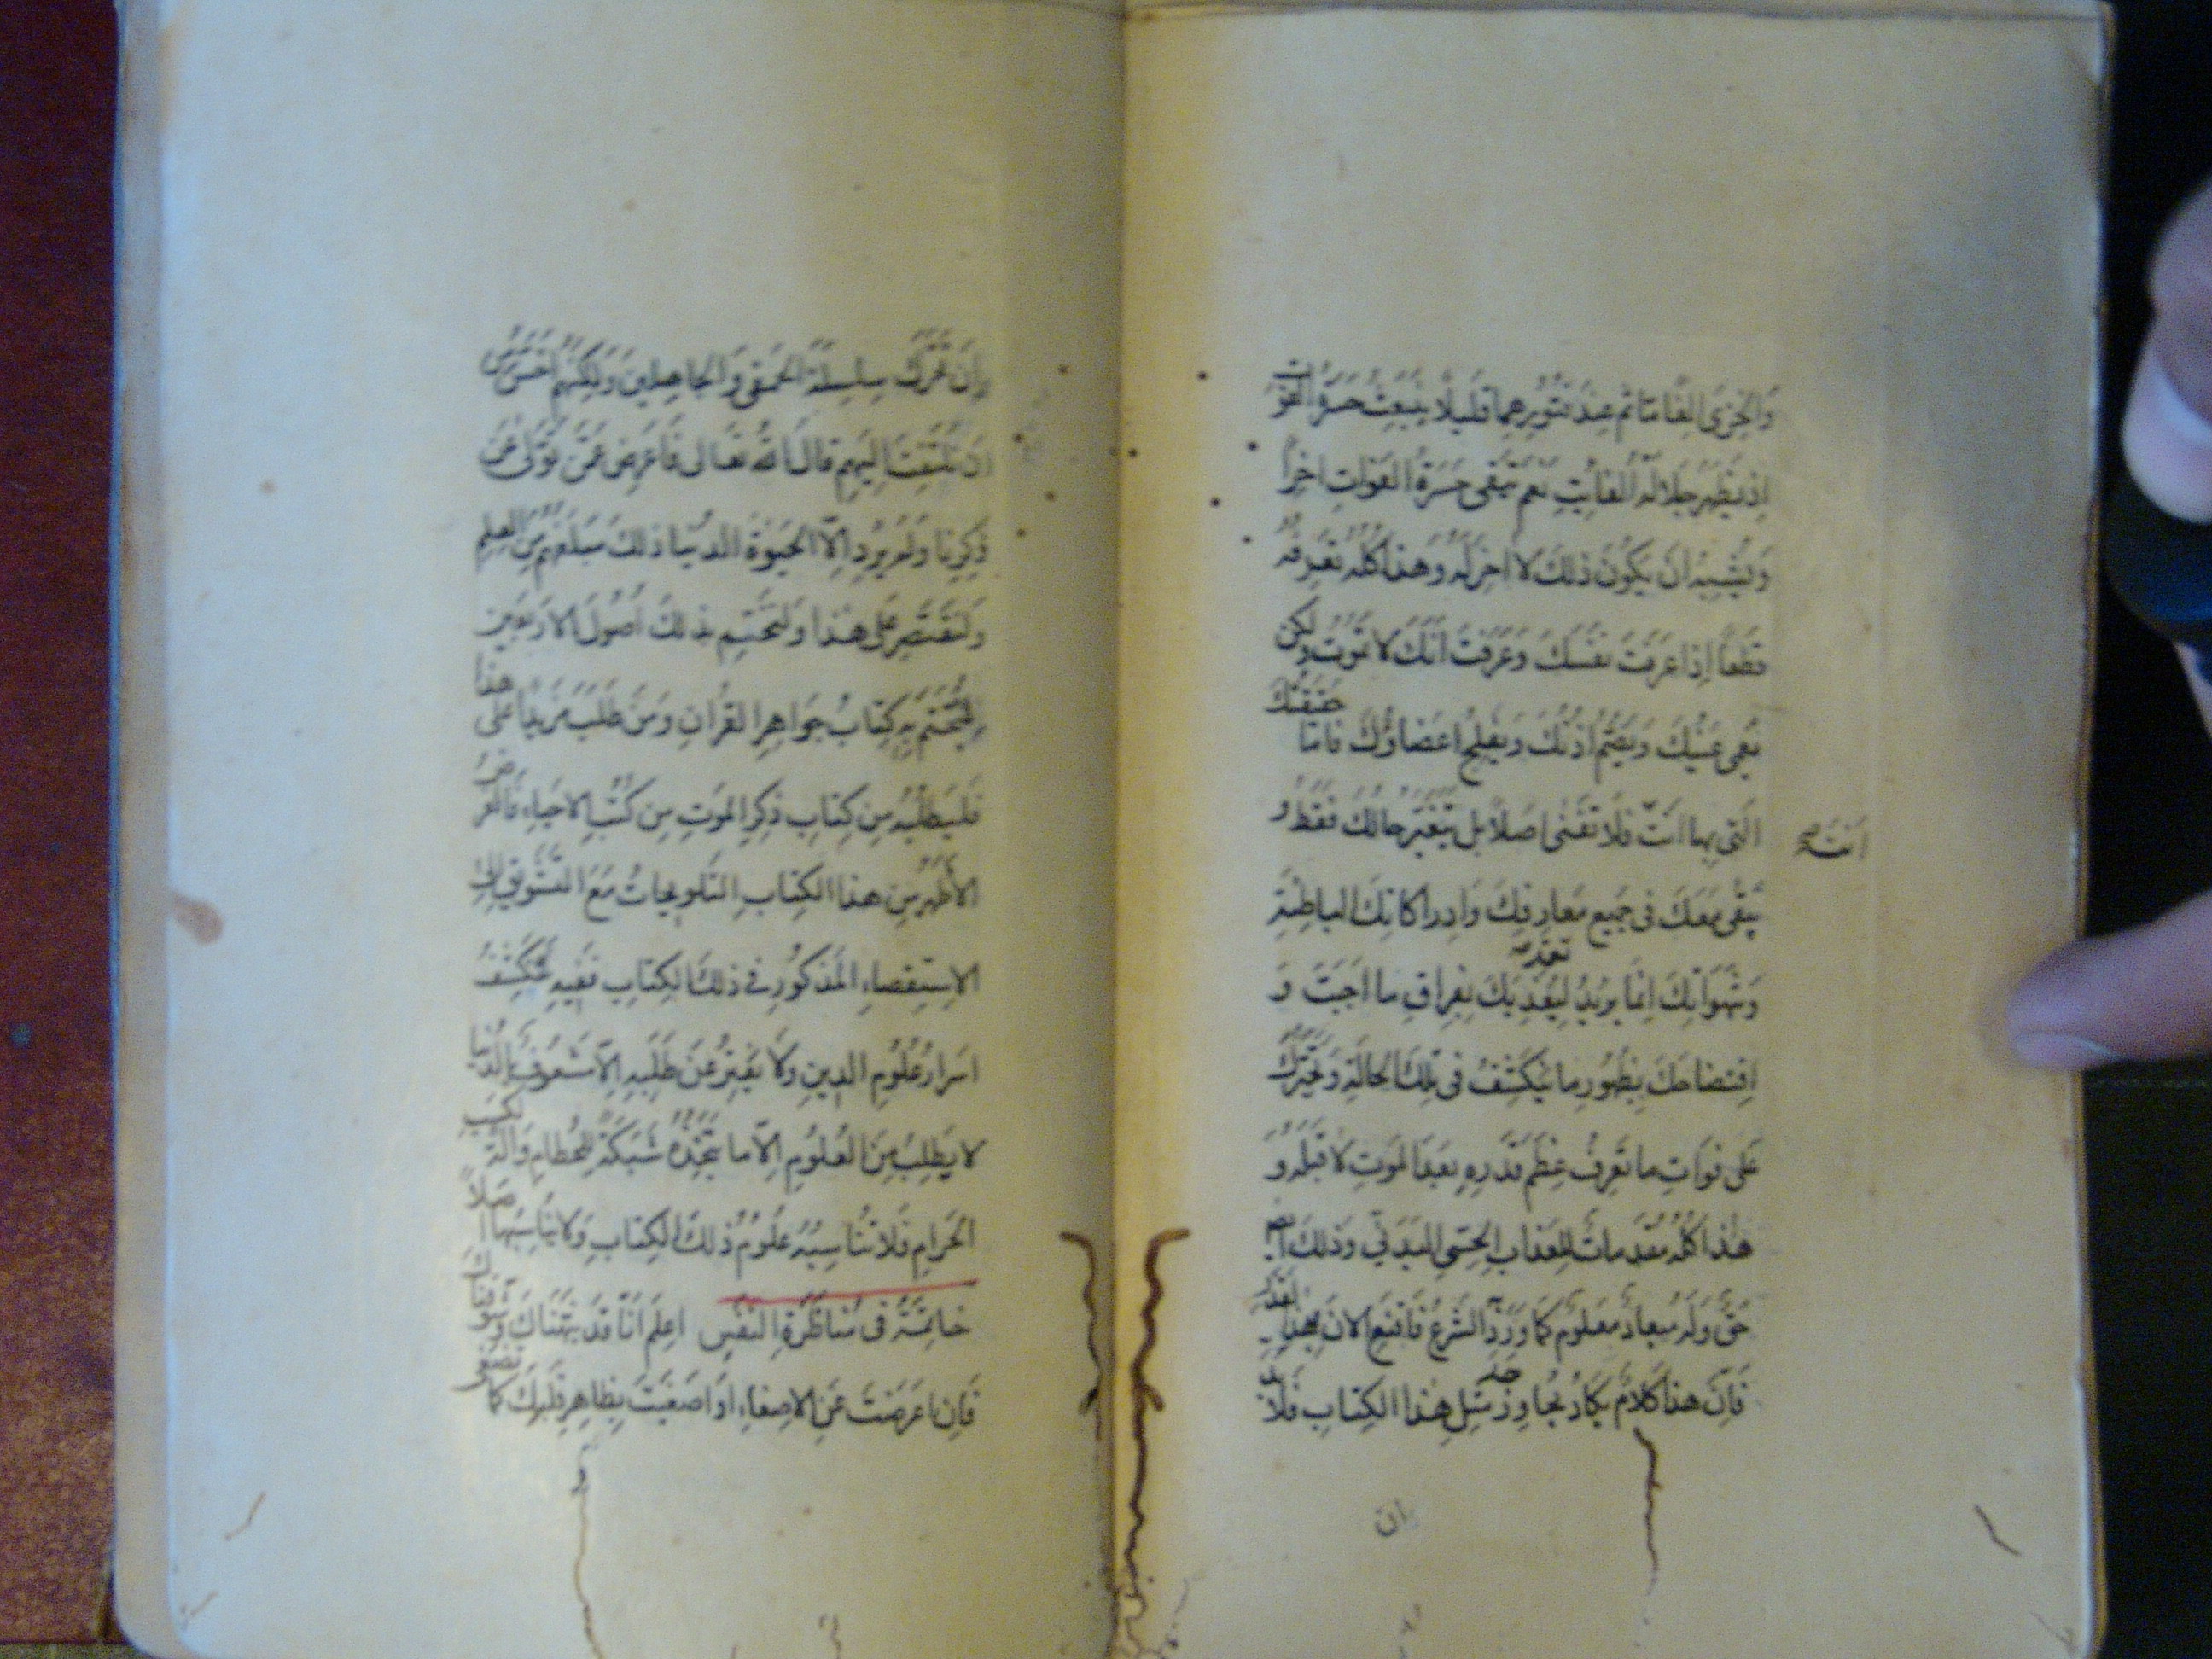 والخزى الفا ما ثم عند تنويرهما قليلا ينبعث حسرة الفوات
اذ يظهر جلالة الفائت نعم تبقى حسرة الفوات اخرا
ويشبه ان يكون ذلك لا اخر له وهذا كله تعرفه
قطعا اذا عرفت نفسك وعرفت انك لا تموت ولكن
تعمى عينك ويصم اذنك ويفلج اعضاؤك فاما حقيقتك
التى بها انت فلا تفنى اصلا بل يتغير حالك فقط و
انت
يبقى معك فى جميع معارفك وادراكاتك الباطنة
وشهواتك انما يريد ليعذبك بفراق ما احببت و
اقتضاحك بظهور ما ينكشف فى تلك الحالة وتحسرك
على فوات ما تعرف عظم قدره بعد الموت لا قبله و
هذا كله مقدمات للعذاب الحسى البدنى وذلك ايضا
حق وله ميعاد معلوم كما ورد الشرع فاقنع الان بهذا القدر
فان هذا كلام يكاد يجاوز حد مثل هذا الكتاب فلا
ان
ان تحرك سلسلة الحمقى والجاهلين ولكنهم اخس من
ان تلتفت اليهم قال الله تعالى فاعرض عمن تولى عن
ذكرنا ولم يرد الا الحيوة الدنيا ذلك مبلغهم من العلم
ولنقتصر على هذا ولنختتم بذلك اصول الاربعين
لنختتم به كتاب جواهر القران ومن طلب مزيدا على هذا
فليطلبه من كتاب ذكر الموت من كتب الاحياء فالغرض
الاظهر من هذا الكتاب التلويحات مع التشويق الى
الاستقصاء المذكور فى ذلك الكتاب ففيه ينكشف
اسرار علوم الدين ولا يفتر عن طلبه الا مشعوف بالدنيا
لا يطلب من العلوم الا ما يتخذه شبكة للحطام والة لكسب
الحرام فلا تناسبه علوم ذلك الكتاب ولا يناسبها اصلا
خاتمة فى مناظرة النفس اعلم انا قد نبهناك وشوقناك
فان اعرضت عن الاصغاء او اصغيت بظاهر قلبك كما تصغى